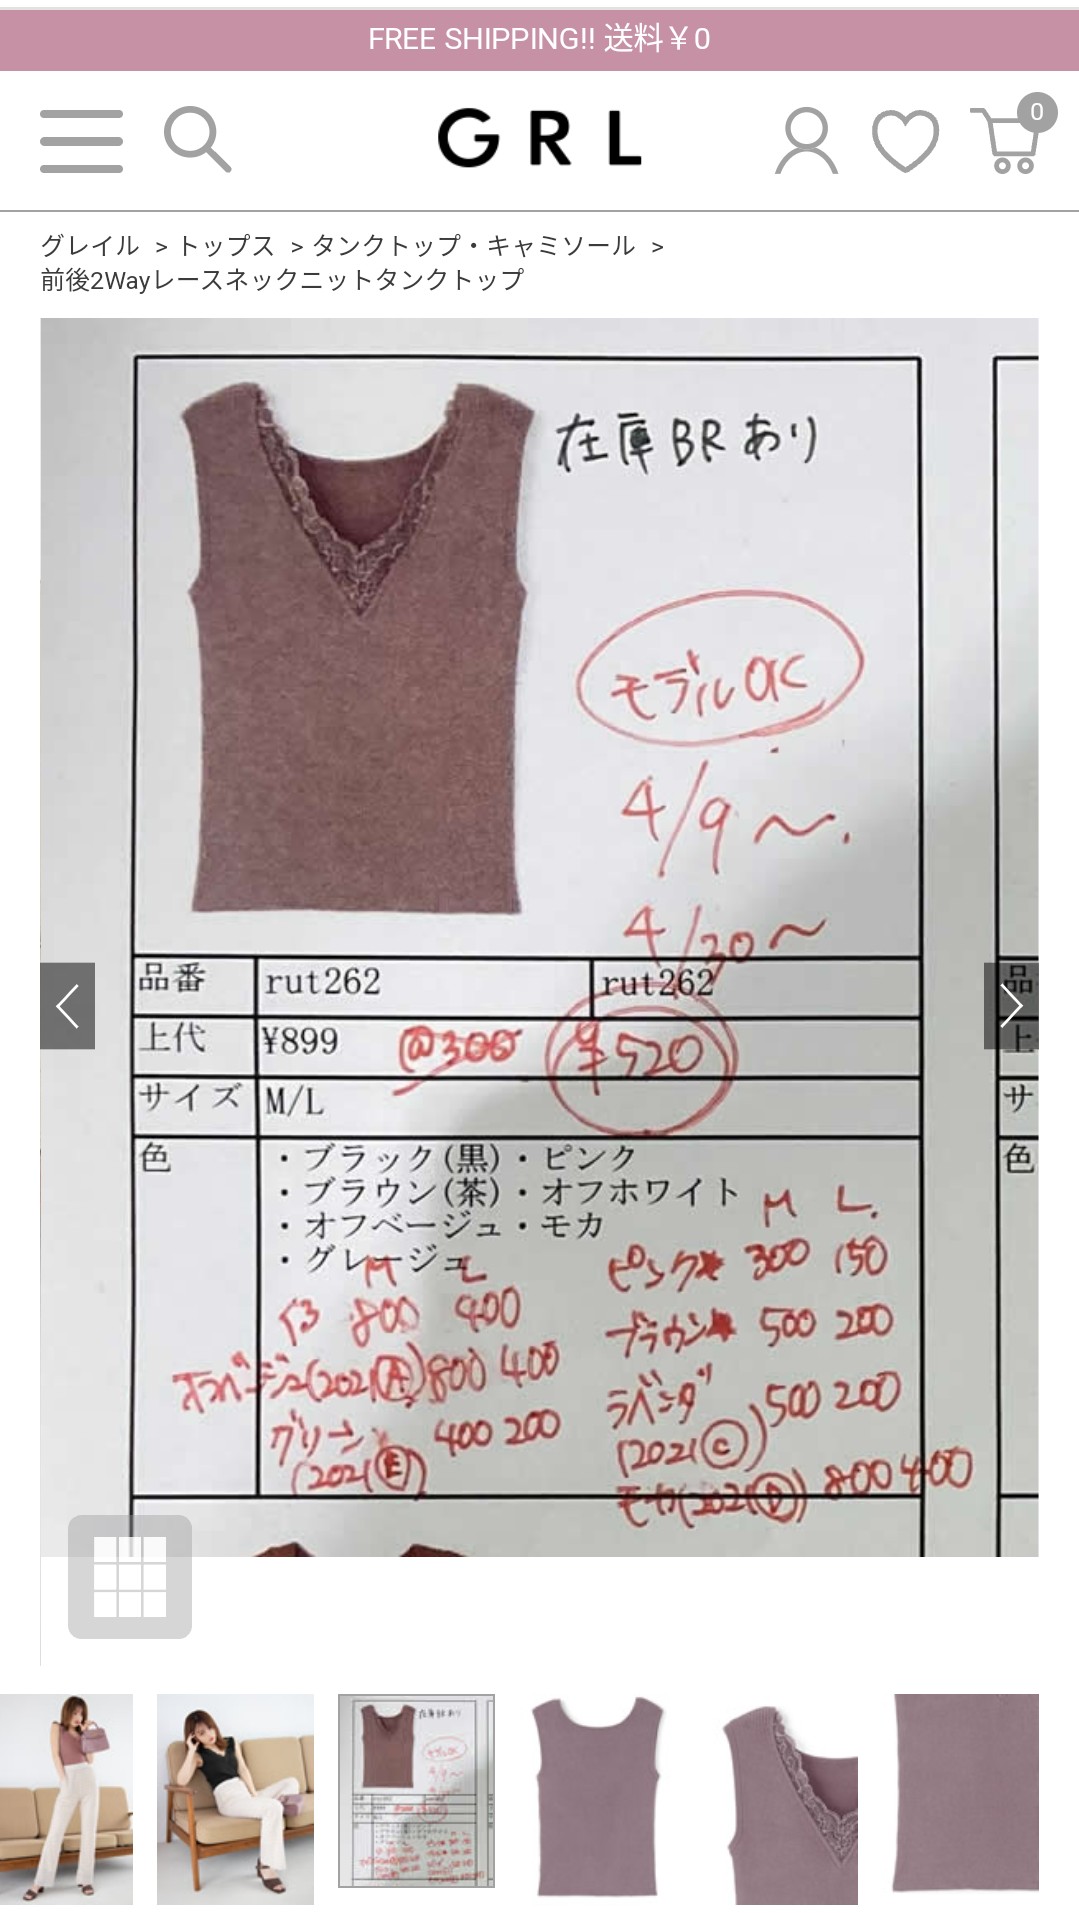 FREE SHIPPING!! 送料￥0
GRL
0
グレイル > トップス > タンクトップ・キャミソール >
前後2Wayレースネックニットタンクトップ
在庫BRあり
モデルOK
4/9～
4/20～
品番 rut262 rut262
上代 ¥899 @300 ¥520
サイズ M/L
色 ・ブラック(黒)・ピンク
・ブラウン(茶)・オフホワイト
・オフベージュ・モカ
・グレージュ
M L
800 400
オフベージュ(2021Ⓐ) 800 400
グリーン 400 200
(2021Ⓔ)
M L.
ピンク 300 150
ブラウン 500 200
ラベンダー 500 200
(2021Ⓒ)
モカ(2021Ⓓ) 800 400
品
上
サ
色